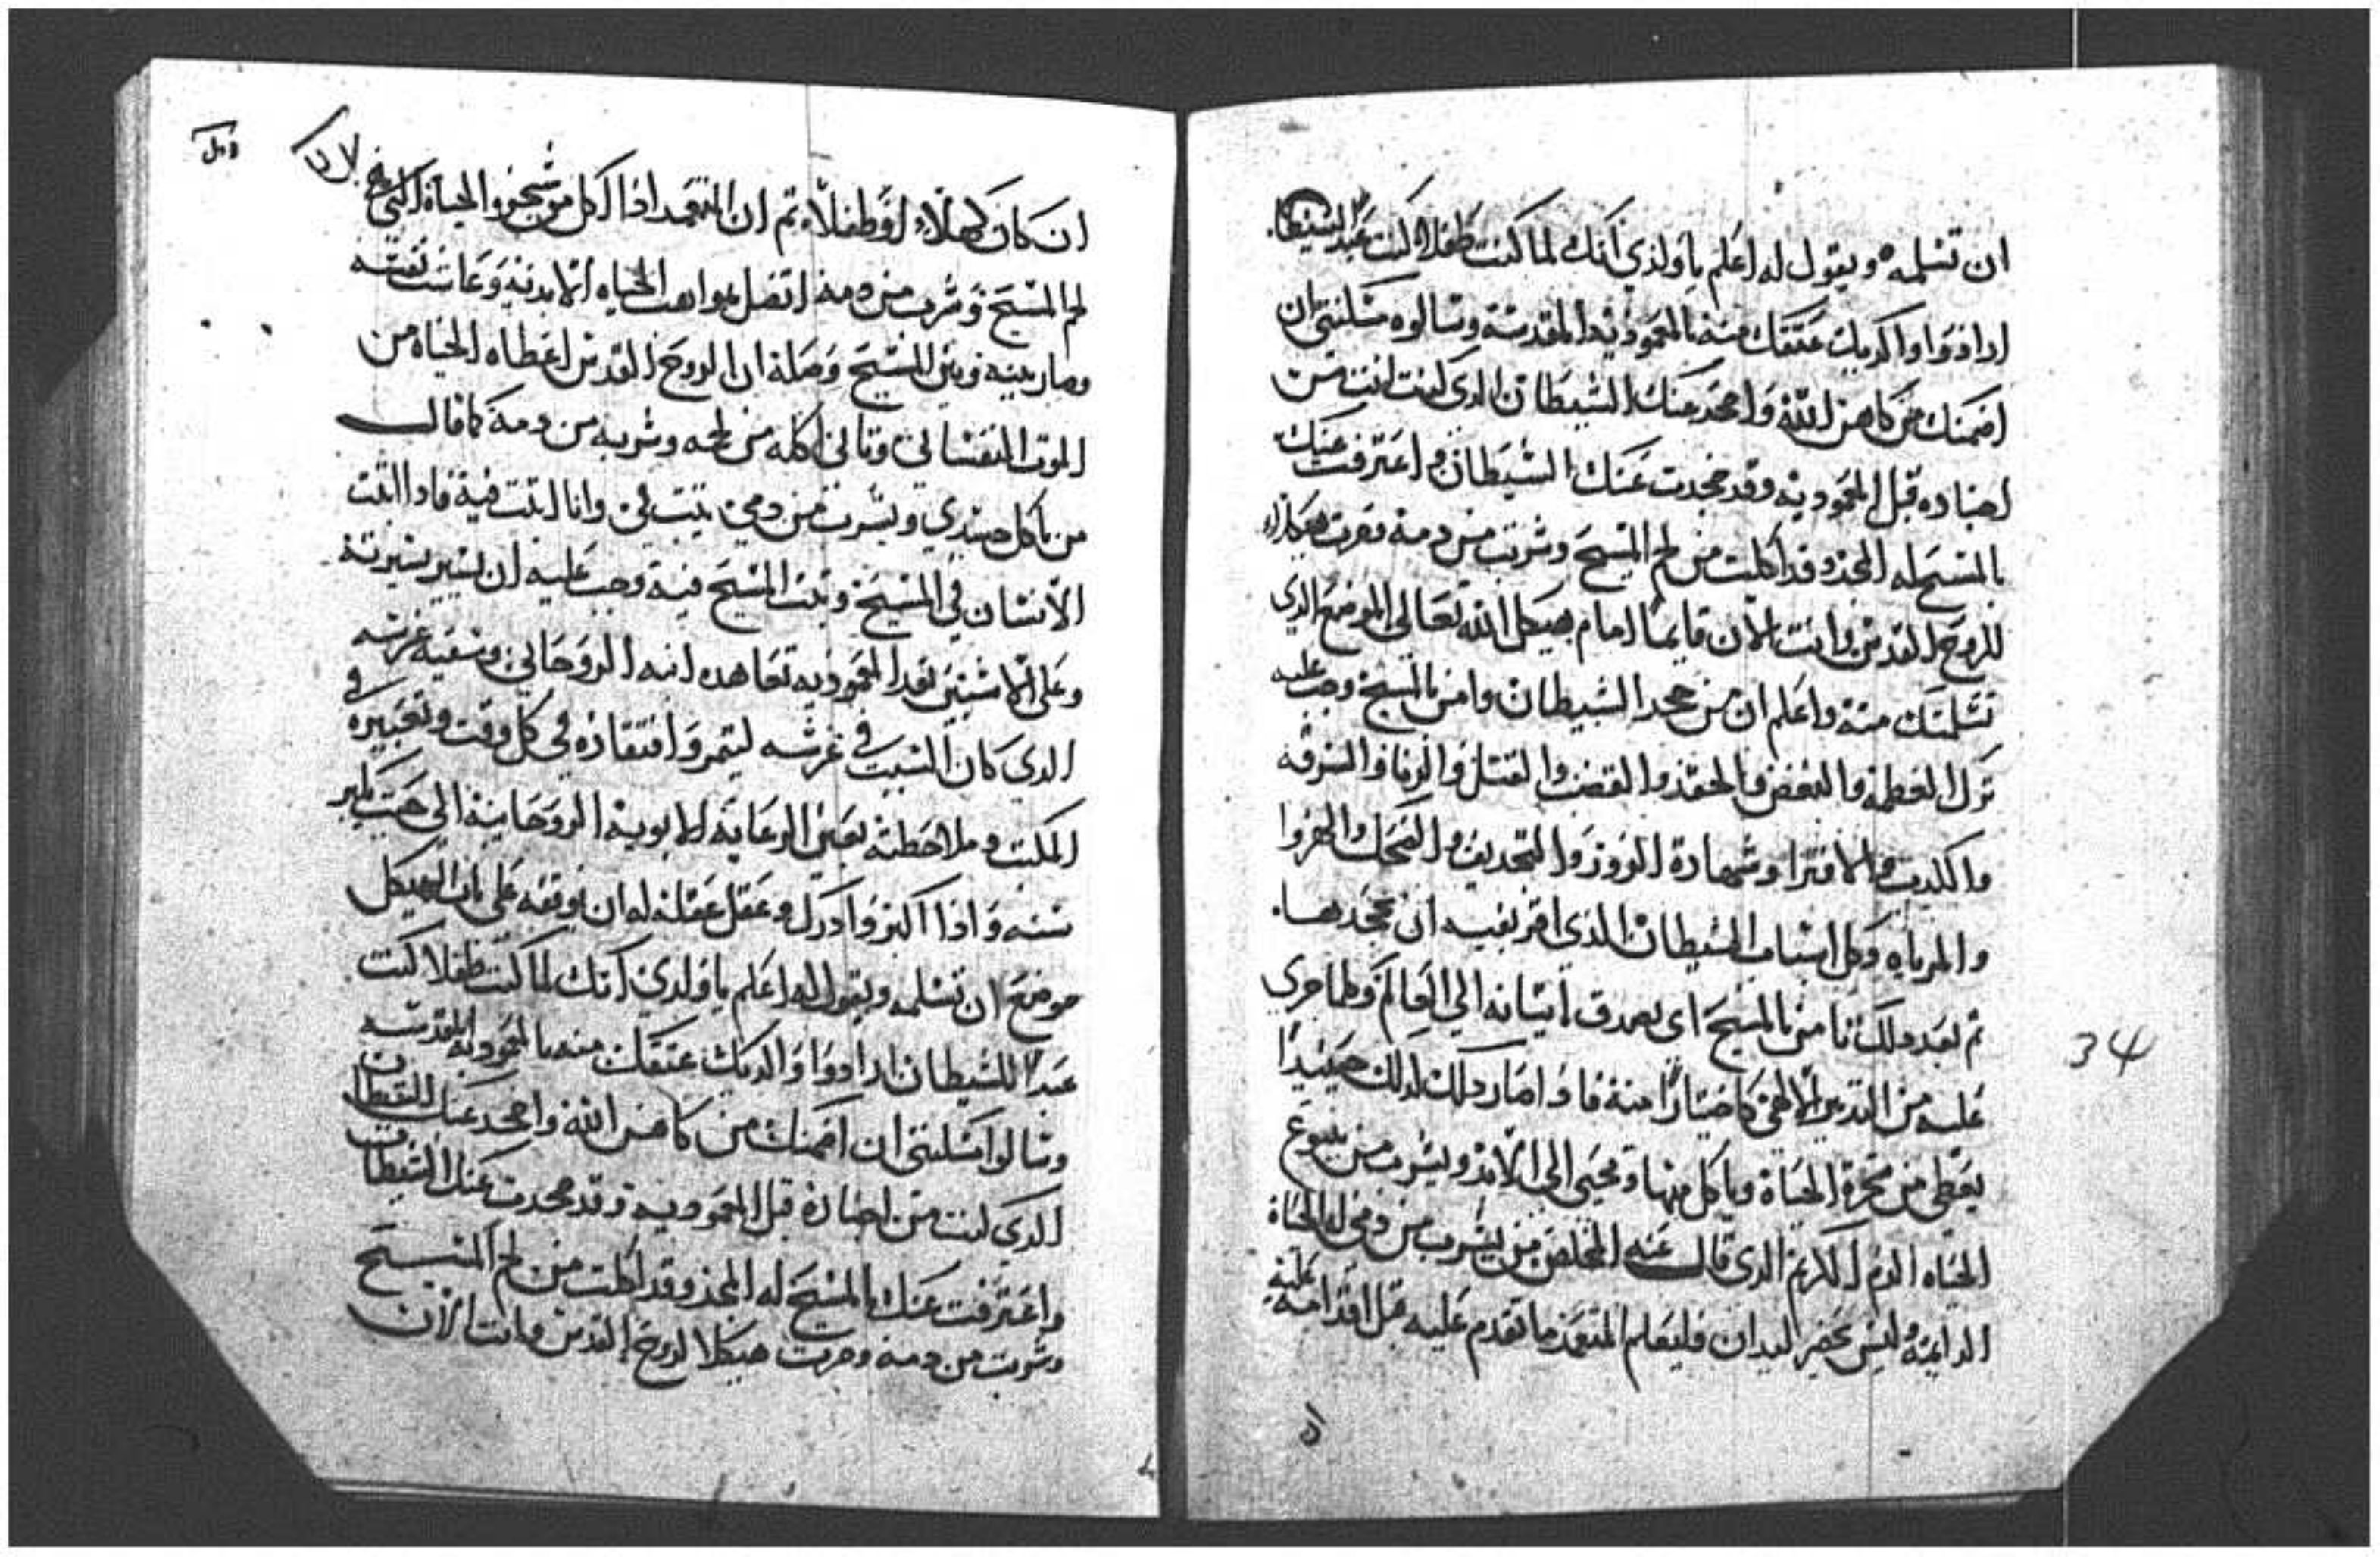 ان تسلمه ويقول له اعلم ياولدي انك لما كنت طفلا كنت عبد الشيطان
ارادوا والديك عتقك منه بالمعموديه المقدسة وسالوه مسلنتي ان
اضمنك من كاهن الله واجحد عنك الشيطان الدي كنت انت من
اجناده قبل المعموديه وقد جحدت عنك الشيطان واعترفت عنك
بالمسيح له المجد وقد اكلت من لحم المسيح وشربت من دمه وصرت هيكلا
للروح القدس وانت الان قايما امام هيكل الله تعالي الموضع الدي
تسلمتك منه واعلم ان من جحد الشيطان وامن بالمسيح وجب عليه
ترك العظمة والبغض والحقد والغضب والقتل والزنا والسرقه
والكدب والافترا وشهادة الزور والتجديف والضحك والهزوا
والمرياه وكل اسباب الشيطان الذي امر بفيه ان نجحدها.
تم بعد دلك نامن بالمسيح اي يصدق باتيانه الي العالم وكلما جري
عليه من التدبير الالهي كاختيارا منه فاذا صار دلك لدلك حينيدا
يعطي من شجرة الحياة وياكل منها ويحيي الي الابد ويشرب من ينبوع
الحياه الدم الكريم الدي قال عنه المخلص من يشرب من دمي له الحياة
الدايمة وليس يحضر البدان فليعلم المتعمد ما تقدم عليه قبل اقدامه عليه
34
ان كان كهلا او طفلا تم ان المتعمد اذا اكل من شجرة الحياة التي هي
لحم المسيح وشرب من دمه اتصل بمواهب الحياه الابدية وعاشت نفسه
وصار بينه وبين المسيح وصلة ان الروح القدس اعطاه الحياه من
الموت النفساني وتاني اكله من لحمه وشربه من دمه كما قال
من ياكل جسدي ويشرب من دمي يتبت في وانا اتبت فيه فادا اتبت
الانسان في المسيح وتبت المسيح فيه وجب عليه ان يسير بسيرته
وعلي الاشبين بعد المعموديه تعاهده ابنه الروحاني وسقيه غرسه
الدي كان السبب في غرسه ليتمر وافتقاده في كل وقت وتعبيره في
المكتب وملاحظته بعين الرعاية الابوية الروحانية الي حيت يكبر
سنه واذا اكبر وادرك وعقل عقله له ان يوقفه علي باب الهيكل
موضع ان تسلمه ويقول له اعلم ياولدي انك لما كنت طفلا كنت
عبدا للشيطان ارادوا والديك عتقك منه بالمعموديه المقدسه
وسالوا مسلنتي ان اضمنك من كاهن الله واجحد عنك الشيطان
الدي انت من اجناده قبل المعموديه وقد جحدت عنك الشيطان
واعترفت عنك بالمسيح له المجد وقد اكلت من لحم المسيح
وشربت من دمه وصرت هيكلا لروح القدس وانت الان